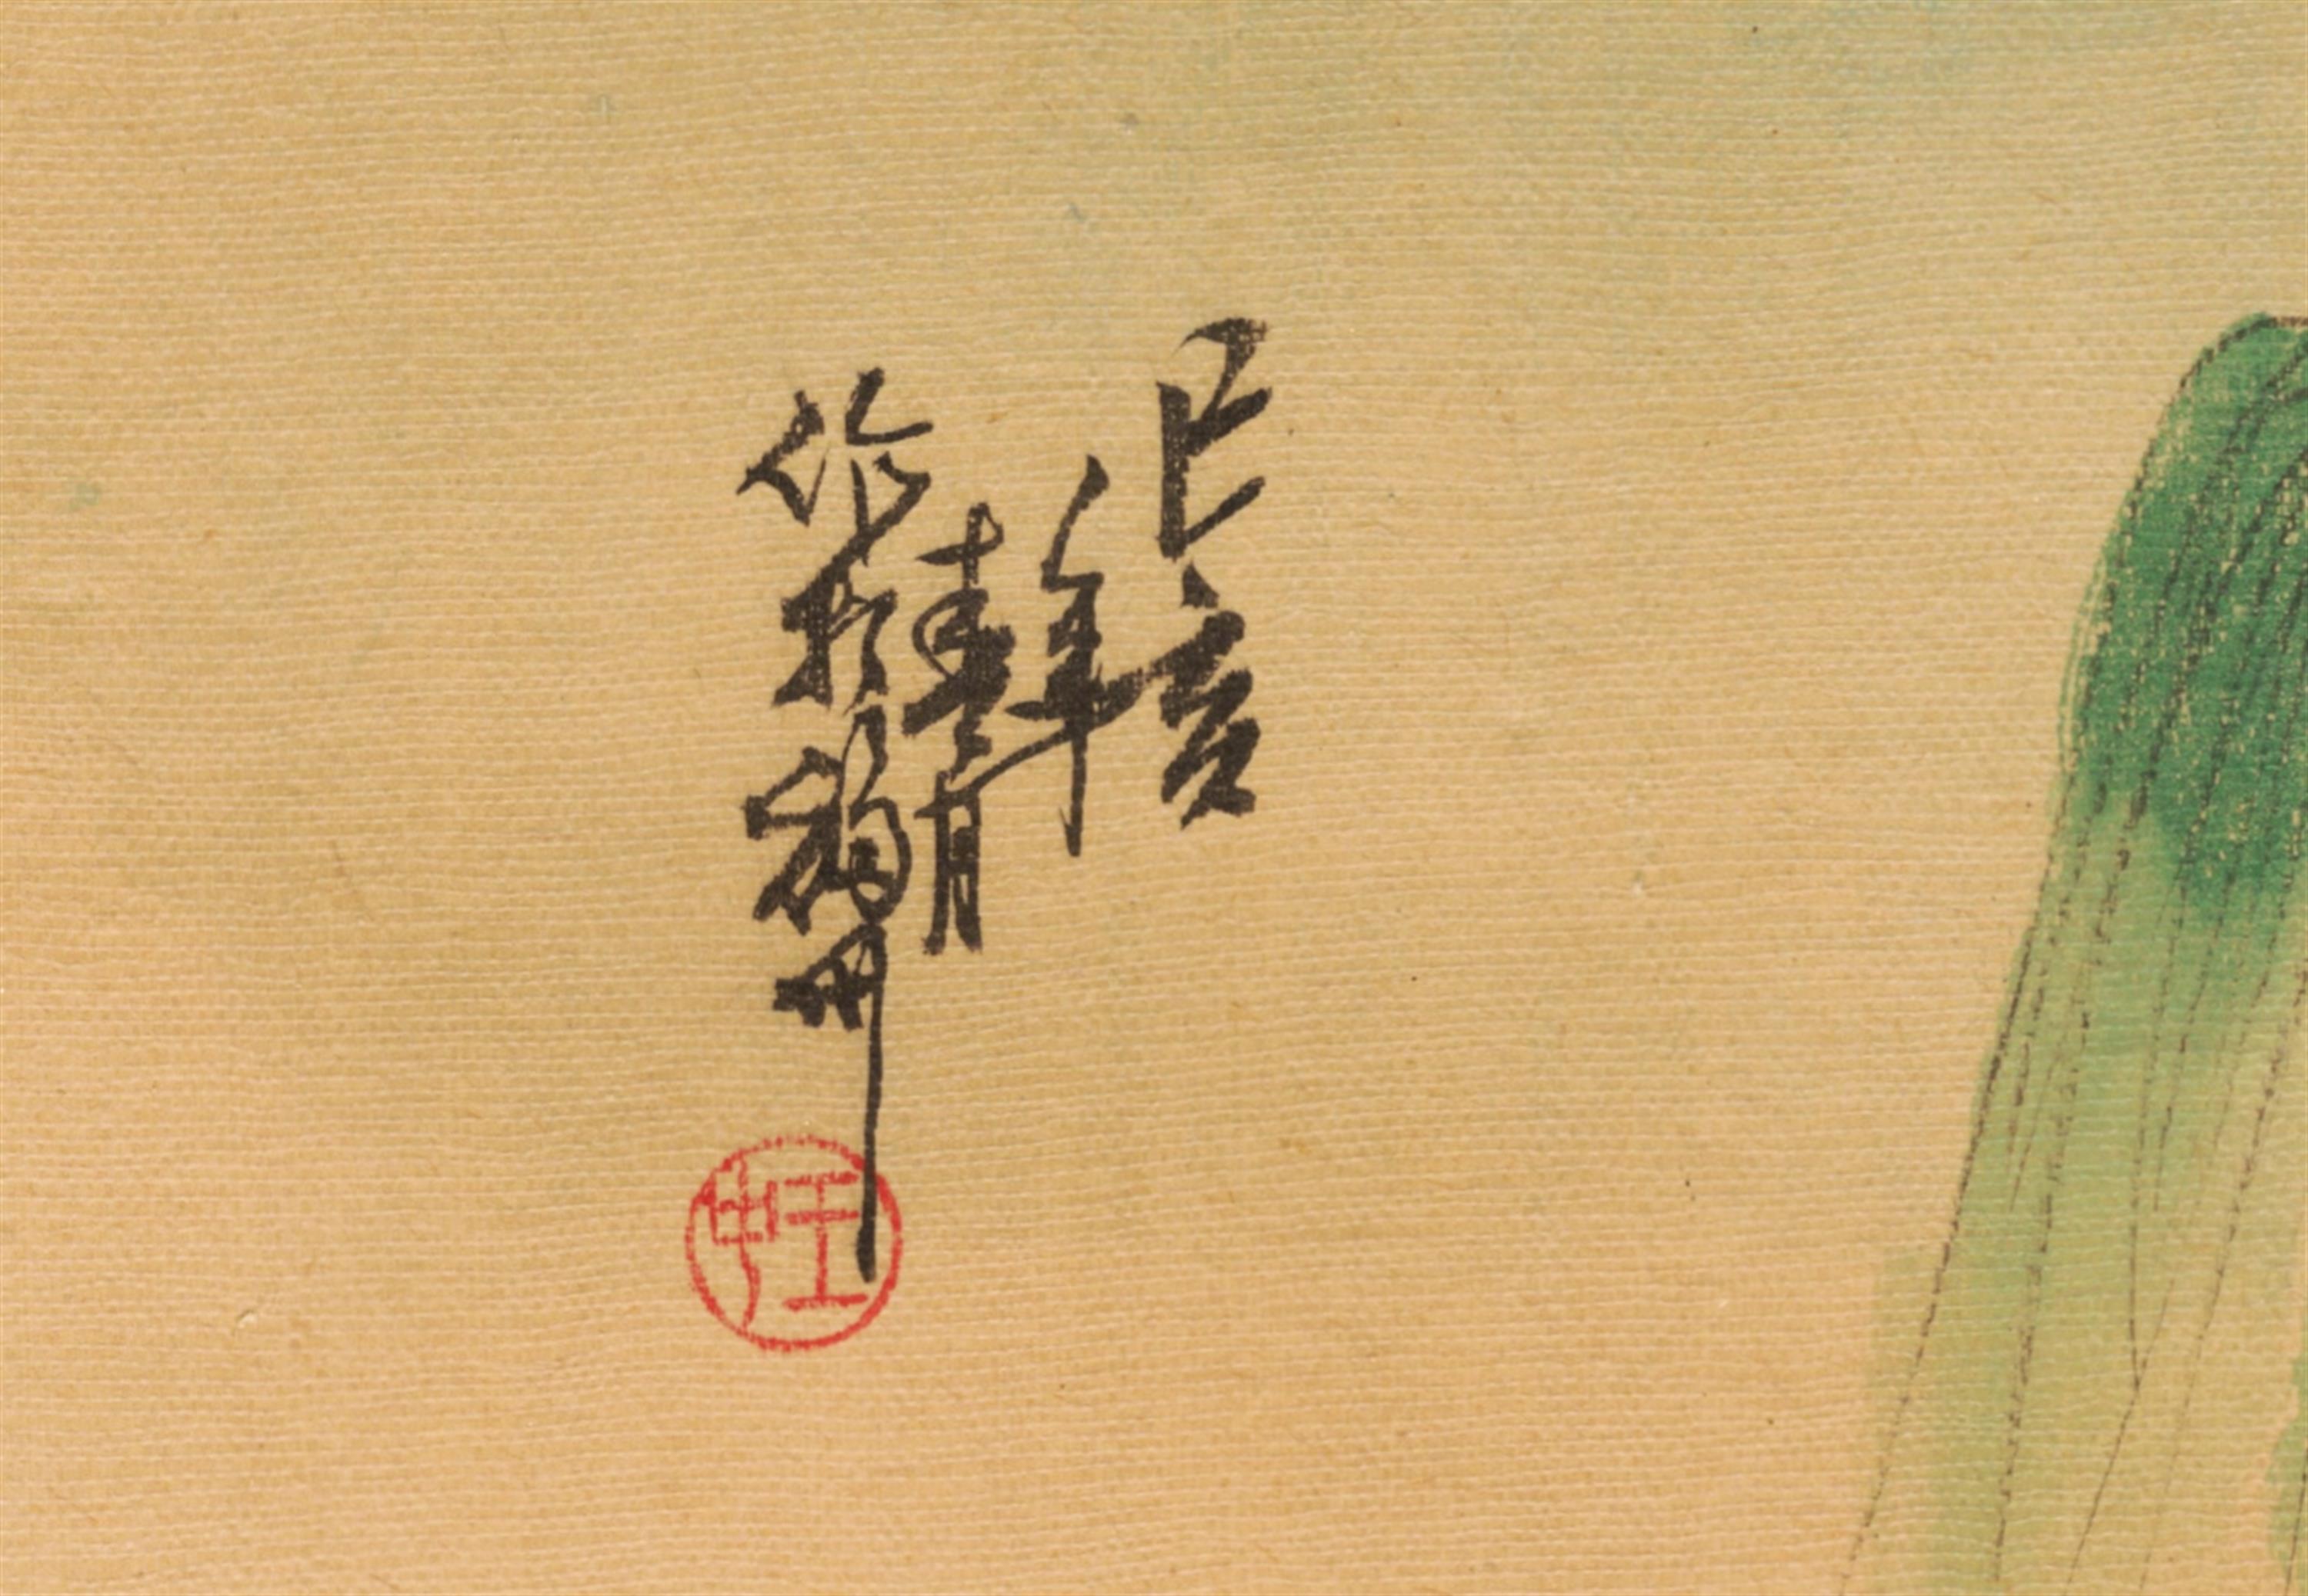 己亥
年
春月
作於福州